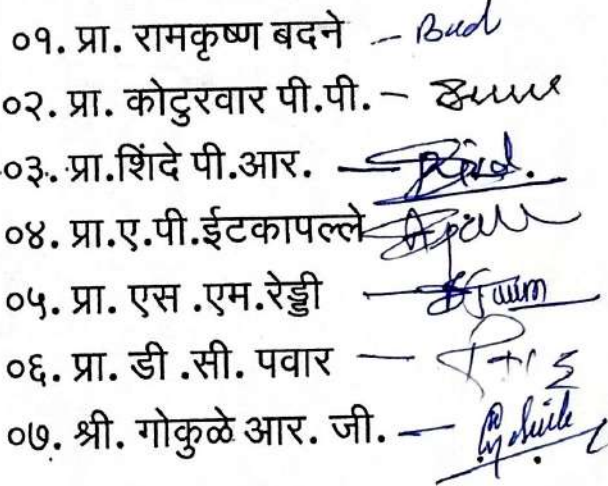 ०१. प्रा. रामकृष्ण बदने -
०२. प्रा. कोटुरवार पी.पी. -
०३. प्रा.शिंदे पी.आर. -
०४. प्रा.ए.पी.ईटकापल्ले
०५. प्रा. एस .एम.रेड्डी -
०६. प्रा. डी .सी. पवार -
०७. श्री. गोकुळे आर. जी. -